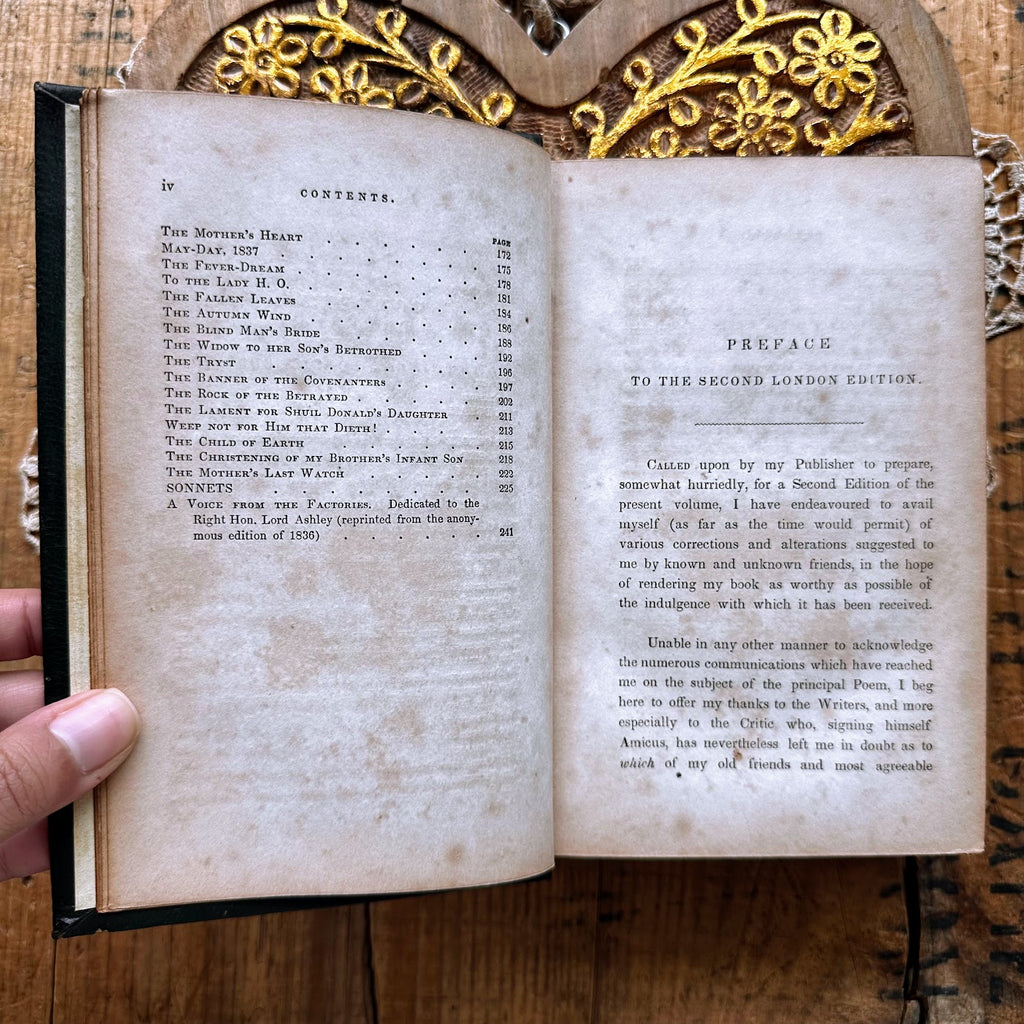 iv
CONTENTS.
PAGE
The Mother's Heart . . . . . . 172
May-Day, 1837 . . . . . . . 175
The Fever-Dream . . . . . . 178
To the Lady H. O. . . . . . . 181
The Fallen Leaves . . . . . . 184
The Autumn Wind . . . . . . 186
The Blind Man's Bride . . . . . 188
The Widow to her Son's Betrothed . . . 192
The Tryst . . . . . . . 196
The Banner of the Covenanters . . . . 197
The Rock of the Betrayed . . . . . 202
The Lament for Shuil Donald's Daughter . 211
Weep not for Him that Dieth! . . . . 213
The Child of Earth . . . . . . 215
The Christening of my Brother's Infant Son 218
The Mother's Last Watch . . . . 222
SONNETS . . . . . . . 225
A Voice from the Factories. Dedicated to the
Right Hon. Lord Ashley (reprinted from the anony-
mous edition of 1836) . . . . . . 241
PREFACE
TO THE SECOND LONDON EDITION.
Called upon by my Publisher to prepare,
somewhat hurriedly, for a Second Edition of the
present volume, I have endeavoured to avail
myself (as far as the time would permit) of
various corrections and alterations suggested to
me by known and unknown friends, in the hope
of rendering my book as worthy as possible of
the indulgence with which it has been received.
Unable in any other manner to acknowledge
the numerous communications which have reached
me on the subject of the principal Poem, I beg
here to offer my thanks to the Writers, and more
especially to the Critic who, signing himself
Amicus, has nevertheless left me in doubt as to
which of my old friends and most agreeable